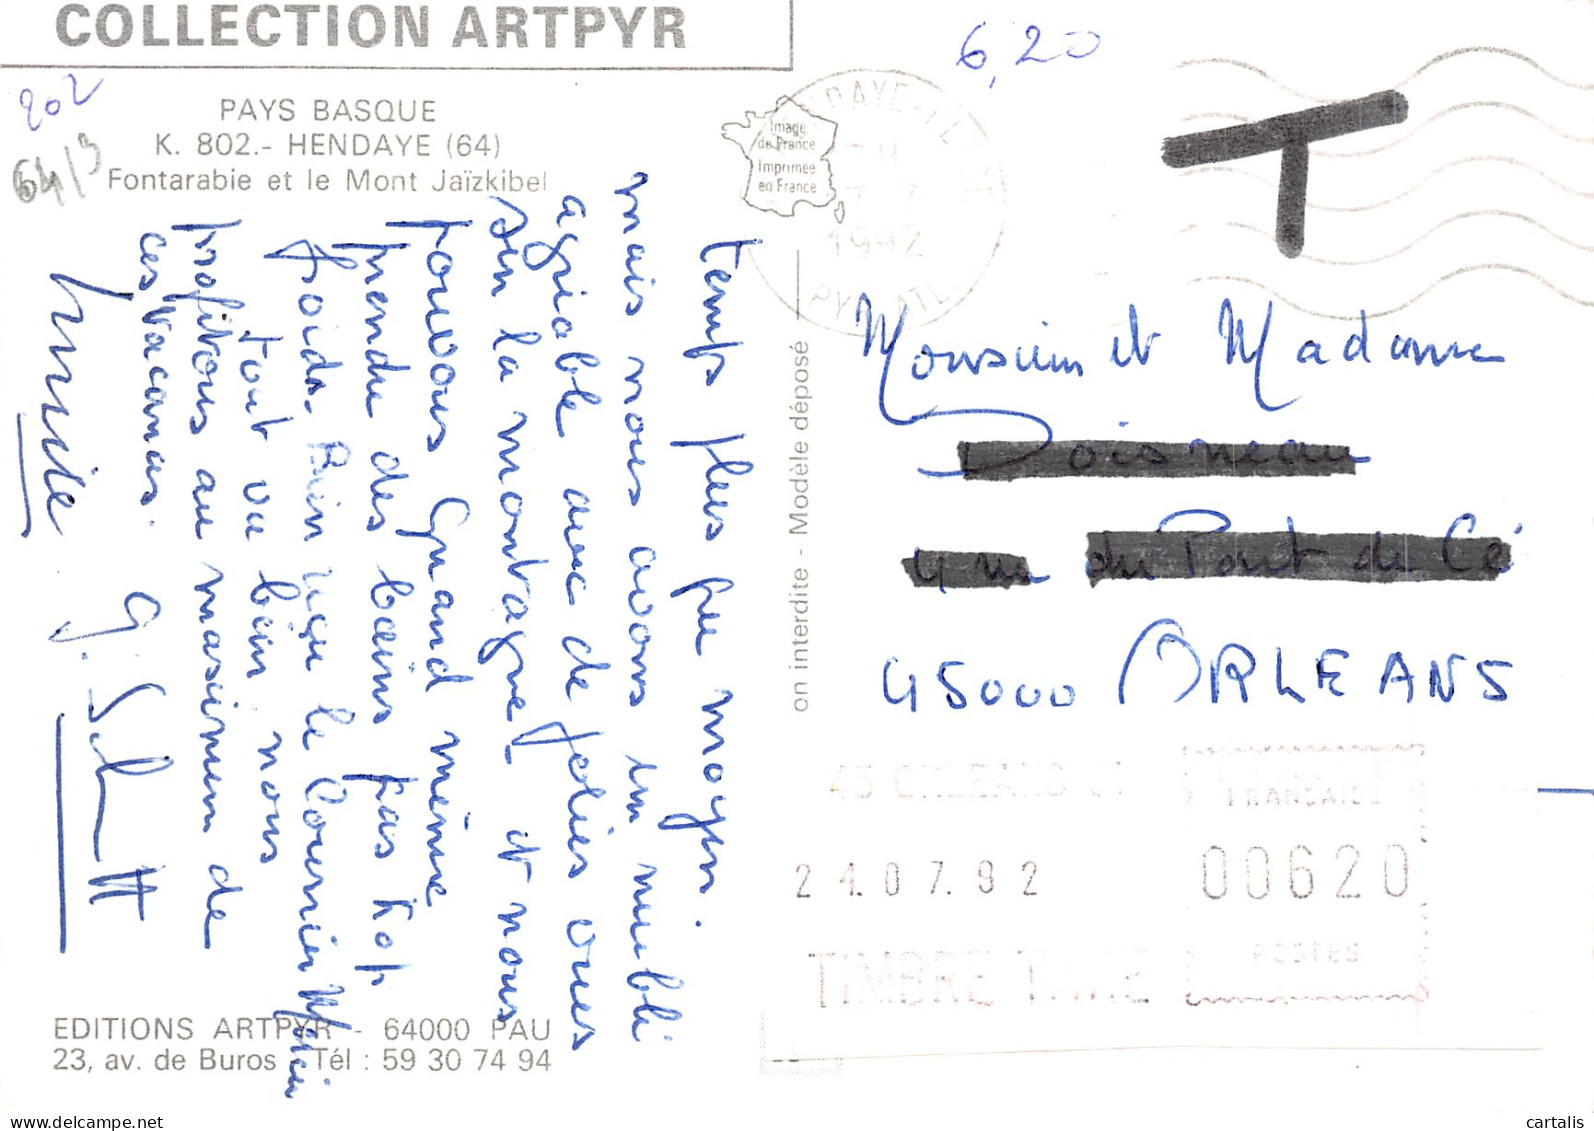 COLLECTION ARTPYR
202
64/3
PAYS BASQUE
K. 802.- HENDAYE (64)
Fontarabie et le Mont Jaïzkibel
temps plus que moyen.
mais nous avons un meublé
agréable avec de jolies vues
sur la montagne et nous
trouvons quand même
prendre des bains pas trop
froids. Bien reçu le Courrier
tout va bien nous
profitons au maximum de
ces vacances.
EDITIONS ARTPYR - 64000 PAU
23, av. de Buros - Tél : 59 30 74 94
on interdite - Modèle déposé
Image
de France
imprimée
en France
1992
6,20
T
Monsieur et Madame
45000 ORLEANS
45 ORLEANS
24.07.92
TIMBRE TAXE
FRANCAISE
00620
POSTES
cartalis
www.delcampe.net